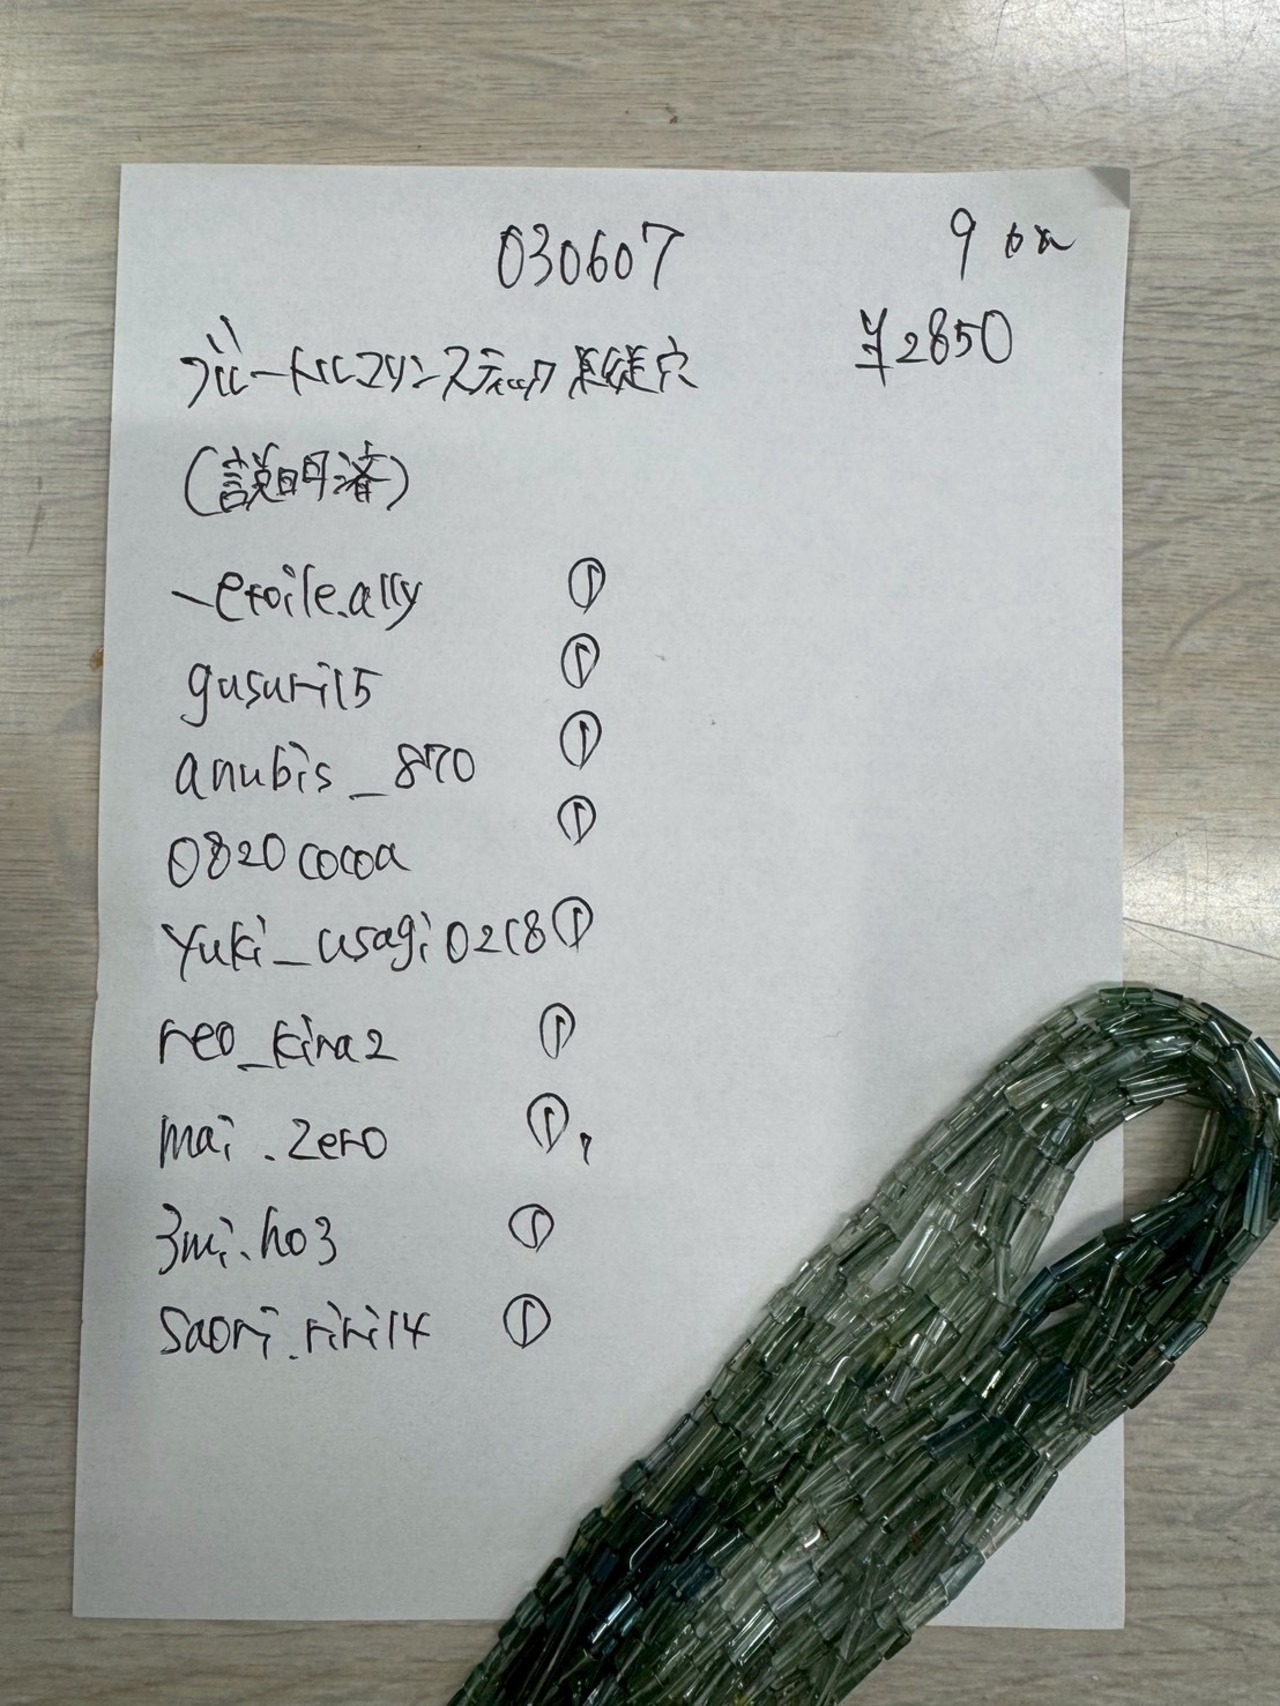 030607
9 on
¥2850
ブルートルマリンスティック型縦穴
(説明済)
_etoile.ally ①
gusuri15 ①
anubis_870 ①
0820cocoa ①
yuki_usagi0218 ①
reo_kira2 ①
mai.zero ①
3mi.ho3 ①
saori.riri14 ①